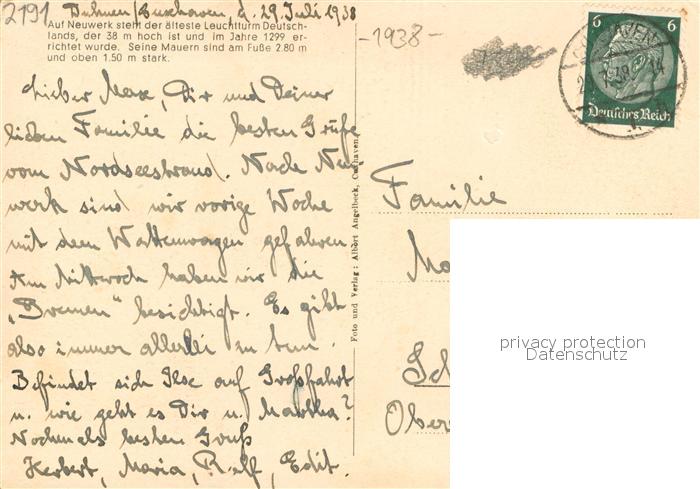 2191 Duhnen/Cuxhaven d. 29. Juli 1938
Auf Neuwerk steht der älteste Leuchtturm Deutsch-
lands, der 38 m hoch ist und im Jahre 1299 er-
richtet wurde. Seine Mauern sind am Fuße 2.80 m
und oben 1.50 m stark.
-1938-
Lieber Max, Dir und Deiner
lieben Familie die besten Grüße
vom Nordseestrand. Nach Neu
werk sind wir vorige Woche
mit dem Wattenwagen gefahren.
Am Mittwoch haben wir die
„Bremen" besichtigt. Es gibt
also immer allerlei zu tun.
Befindet sich Ilse auf Großfahrt
u. wie geht es Dir u. Martha?
Nochmals besten Gruß
Herbert, Maria, Ralf, Edit.
Foto und Verlag: Albert Angelbeck, Cuxhaven.
6 6
Deutsches Reich
Familie
Ma
Sch
Ober
privacy protection
Datenschutz